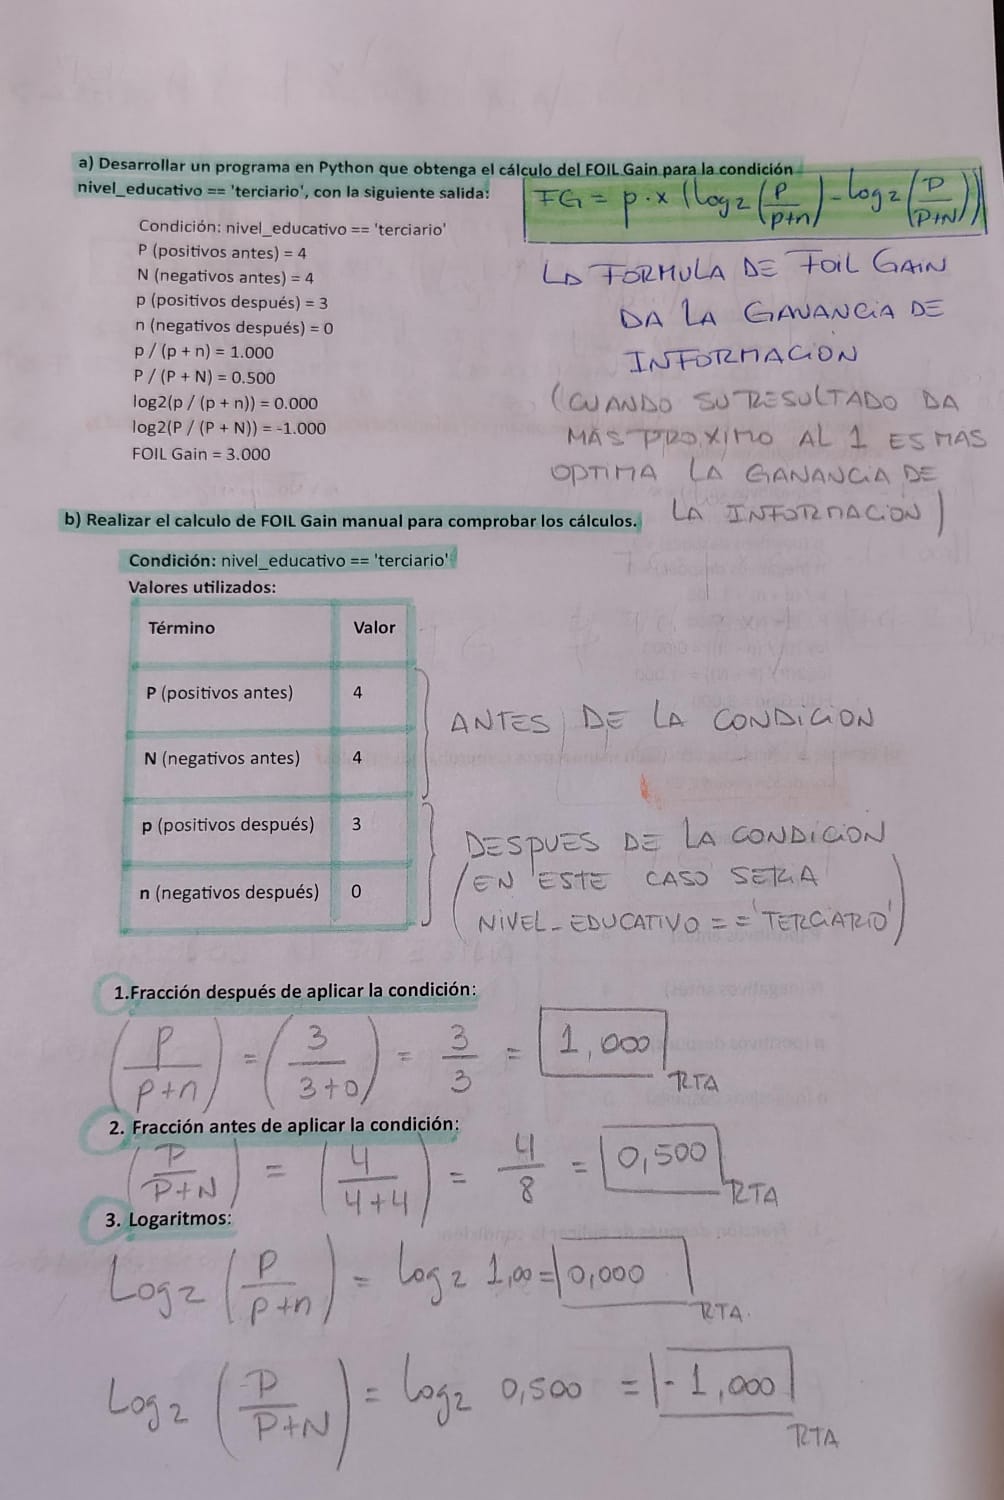 a) Desarrollar un programa en Python que obtenga el cálculo del FOIL Gain para la condición
nivel_educativo == 'terciario', con la siguiente salida:
FG = p · x (log2 (p/p+n) - log2 (P/P+N))
Condición: nivel_educativo == 'terciario'
P (positivos antes) = 4
N (negativos antes) = 4
p (positivos después) = 3
n (negativos después) = 0
p / (p + n) = 1.000
P / (P + N) = 0.500
log2(p / (p + n)) = 0.000
log2(P / (P + N)) = -1.000
FOIL Gain = 3.000
LA FORMULA DE FOIL GAIN
DA LA GANANCIA DE
INFORMACION
(CUANDO SU RESULTADO DA
MAS PROXIMO AL 1 ES MAS
OPTIMA LA GANANCIA DE
LA INFORMACION)
b) Realizar el calculo de FOIL Gain manual para comprobar los cálculos.
Condición: nivel_educativo == 'terciario'
Valores utilizados:
Término Valor
P (positivos antes) 4
N (negativos antes) 4
ANTES DE LA CONDICION
p (positivos después) 3
n (negativos después) 0
DESPUES DE LA CONDICION
(EN ESTE CASO SERIA
NIVEL_EDUCATIVO == 'TERCIARIO')
1.Fracción después de aplicar la condición:
(p/p+n) = (3/3+0) = 3/3 = 1,000 RTA
2. Fracción antes de aplicar la condición:
(P/P+N) = (4/4+4) = 4/8 = 0,500 RTA
3. Logaritmos:
Log2 (p/p+n) = log2 1,00 = 0,000 RTA.
Log2 (P/P+N) = log2 0,500 = -1,000 RTA